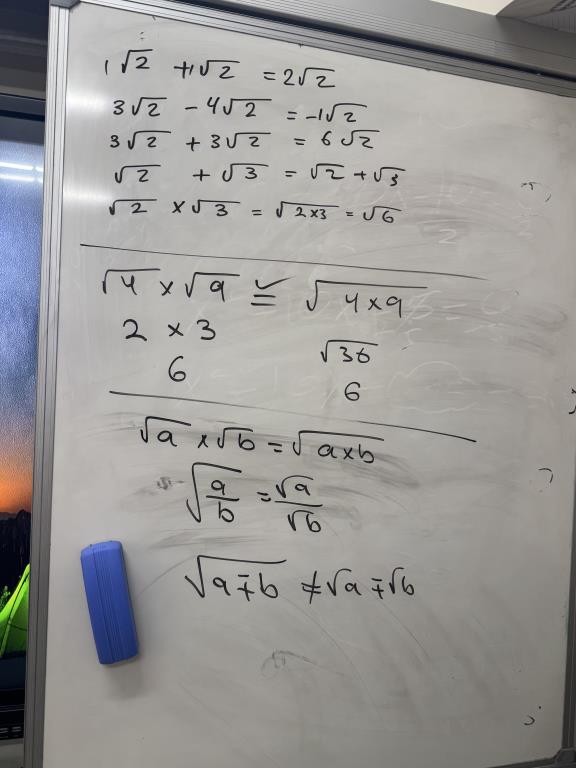 1√2 + 1√2 = 2√2
3√2 - 4√2 = -1√2
3√2 + 3√2 = 6√2
√2 + √3 = √2 + √3
√2 × √3 = √(2×3) = √6
√4 × √9 ≅ √(4×9)
2 × 3 √36
6 6
√a × √b = √(a×b)
√(a/b) = √a/√b
√(a∓b) ≠ √a ∓ √b